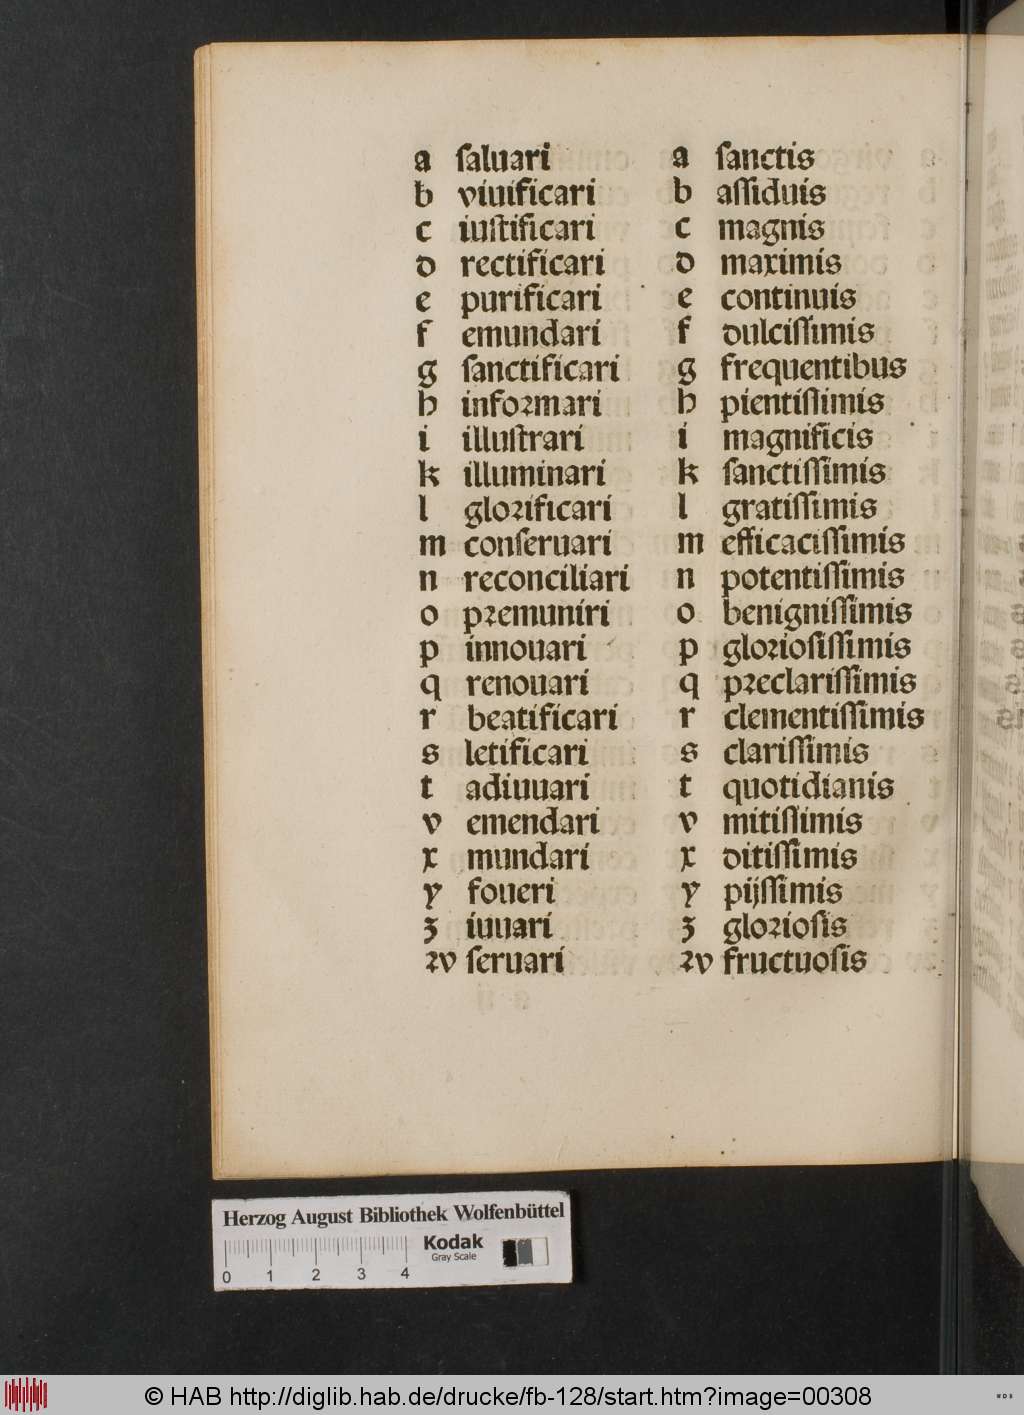 a ſaluari
b viuificari
c iuſtificari
d rectificari
e purificari
f emundari
g ſanctificari
h infoꝛmari
i illuſtrari
k illuminari
l gloꝛificari
m conſeruari
n reconciliari
o pꝛemuniri
p innouari
q renouari
r beatificari
s letificari
t adiuuari
v emendari
x mundari
y foueri
ʒ iuuari
ꝛv ſeruari
a ſanctis
b aſſiduis
c magnis
d maximis
e continuis
f dulciſſimis
g frequentibus
h pientiſſimis
i magnificis
k ſanctiſſimis
l gratiſſimis
m efficaciſſimis
n potentiſſimis
o benigniſſimis
p gloꝛioſiſſimis
q pꝛeclariſſimis
r clementiſſimis
s clariſſimis
t quotidianis
v mitiſſimis
x ditiſſimis
y pijſſimis
ʒ gloꝛioſis
ꝛv fructuoſis
Herzog August Bibliothek Wolfenbüttel
Kodak
Gray Scale
0 1 2 3 4
© HAB http://diglib.hab.de/drucke/fb-128/start.htm?image=00308